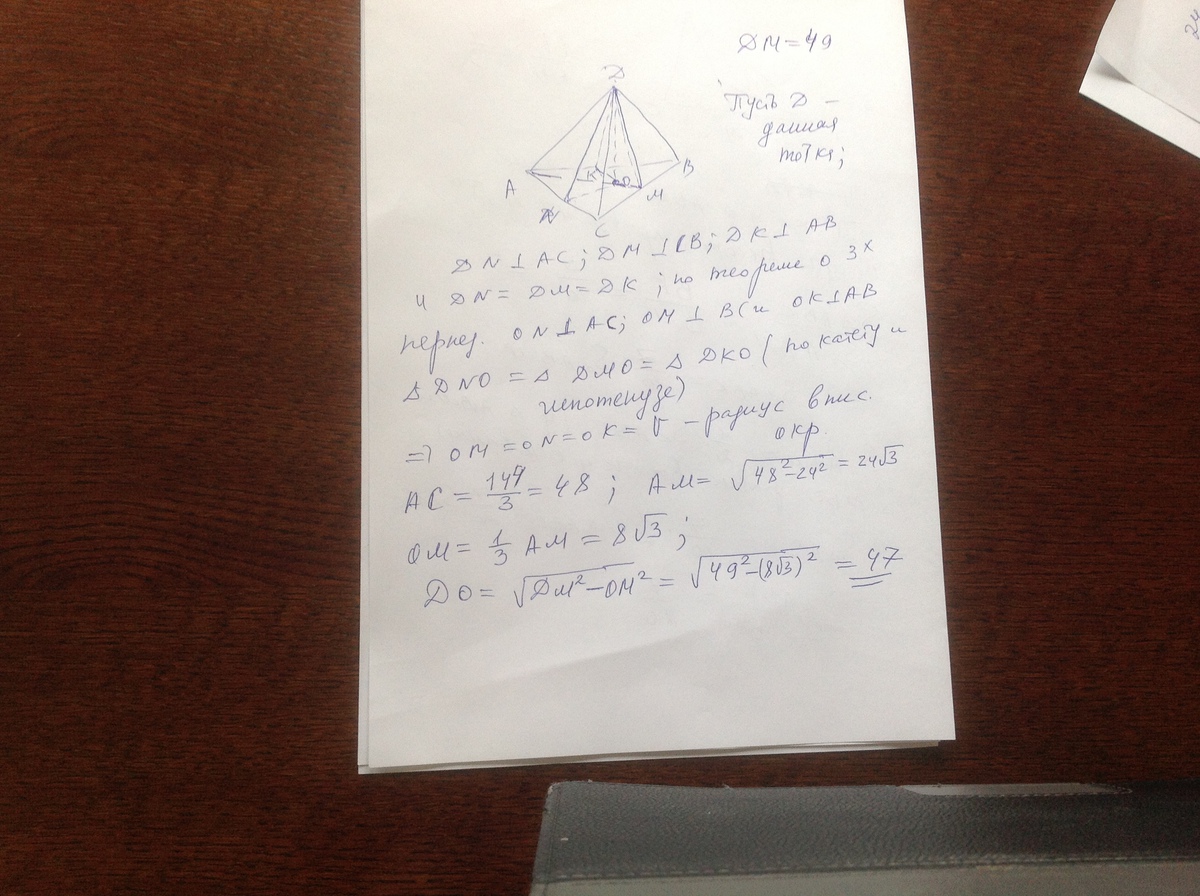 DM = 49
Пусть D –
данная
точка;
D
A
B
K
O
M
N
C
DN ⊥ AC; DM ⊥ CB; DK ⊥ AB
и DN = DM = DK; по теореме о 3х
перпед. ON ⊥ AC; OM ⊥ BC и OK ⊥ AB
Δ DNO = Δ DMO = Δ DKO (по катету и
гипотенузе)
=> OM = ON = OK = r – радиус впис.
окр.
AC = 144/3 = 48; AM = √(48² – 24²) = 24√3
OM = 1/3 AM = 8√3;
DO = √(DM² – OM²) = √(49² – (8√3)²) = 47